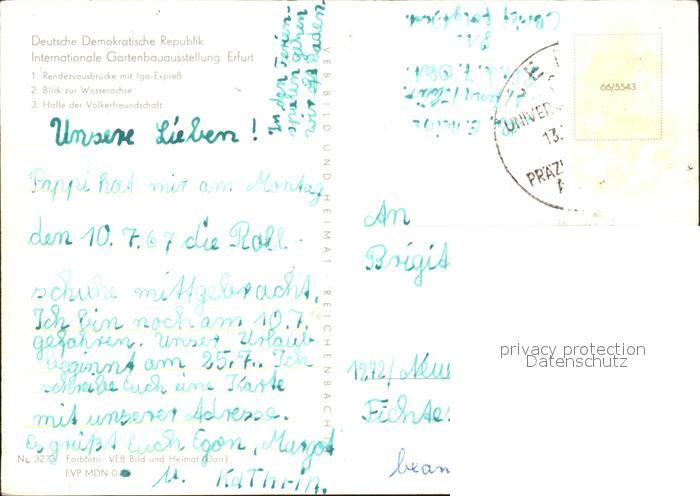 Deutsche Demokratische Republik
Internationale Gartenbauausstellung Erfurt
1. Rendezvousbrücke mit Iga-Expreß
2. Blick zur Wasserachse
3. Halle der Völkerfreundschaft
In den Ferien-
spielen gehen
wir oft baden.
Unsere Lieben!
Pappi hat mir am Montag
den 10.7.67 die Roll-
schuhe mittgebracht.
Ich bin noch am 10.7.
gefahren. Unser Urlaub
beginnt am 25.7.. Ich
schreibe Euch eine Karte
mit unserer Adresse.
Es grüßt Euch Egon, Margot
u. Kathrin.
Nr. 3273 Farbfoto: VEB Bild und Heimat (Darr)
EVP MDN 0
VEB BILD UND HEIMAT REICHENBACH
E. Heinz
66/5543
UNIVER
13.
PRÄZ
An
Brigit
1272/Neu
Fichte
bean
privacy protection
Datenschutz